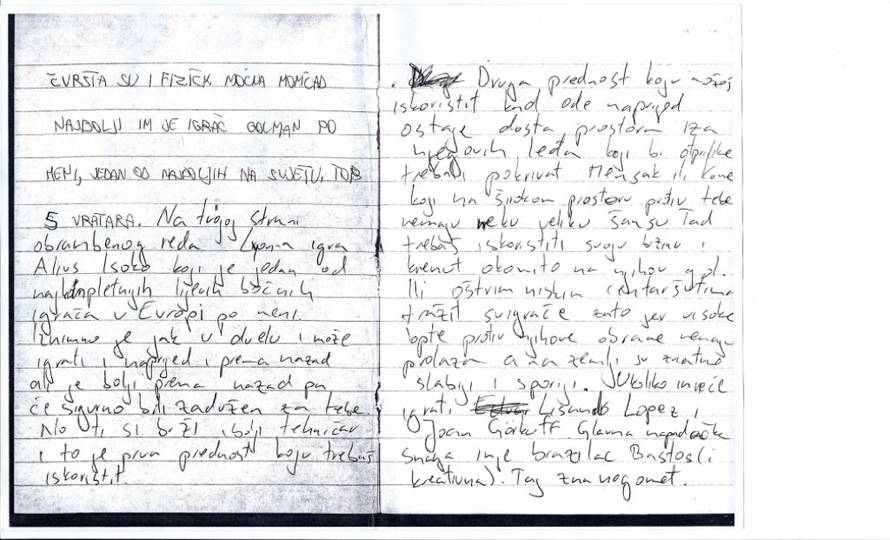 ČVRSTA SU I FIZIČK MOĆNA MOMČAD
NAJBOLJI IM JE IGRAČ GOLMAN PO
MENI, JEDAN OD NAJBOLJIH NA SVIJETU, TOP
5 VRATARA. Na tvojoj strani
obrambenog reda Lyona igra
Alius Isoko koji je jedan od
najkompletnijih lijevih bočnih
igrača u Evropi po meni.
Iznimno je jak u duelu i može
igrati i naprijed i prema nazad
ali je bolji prema nazad pa
će sigurno biti zadužen za tebe.
No ti si brži i bolji tehničar
i to je prva prednost koju trebaš
iskoristit.
Druga prednost koju možeš
iskoristit kad ode naprijed
ostaje dosta prostora iza
njegovih leđa koji bi otprilike
trebali pokrivat Mensak ili Kone
koji na širokom prostoru protiv tebe
nemaju neku veliku šansu. Tad
trebaš iskoristiti svoju brzinu i
krenut okomito na njihov gol.
Ili oštrim niskim centaršutima
tražit suigrače zato jer visoke
lopte protiv njihove obrane nemaju
prolaza a na zemlji su znatno
slabiji i sporiji. Ukoliko im neće
igrati Lisando Lopez i
Joan Görkuff. Glavna napadačka
snaga im je brazilac Bastos (i
kreativna). Taj zna nogomet.